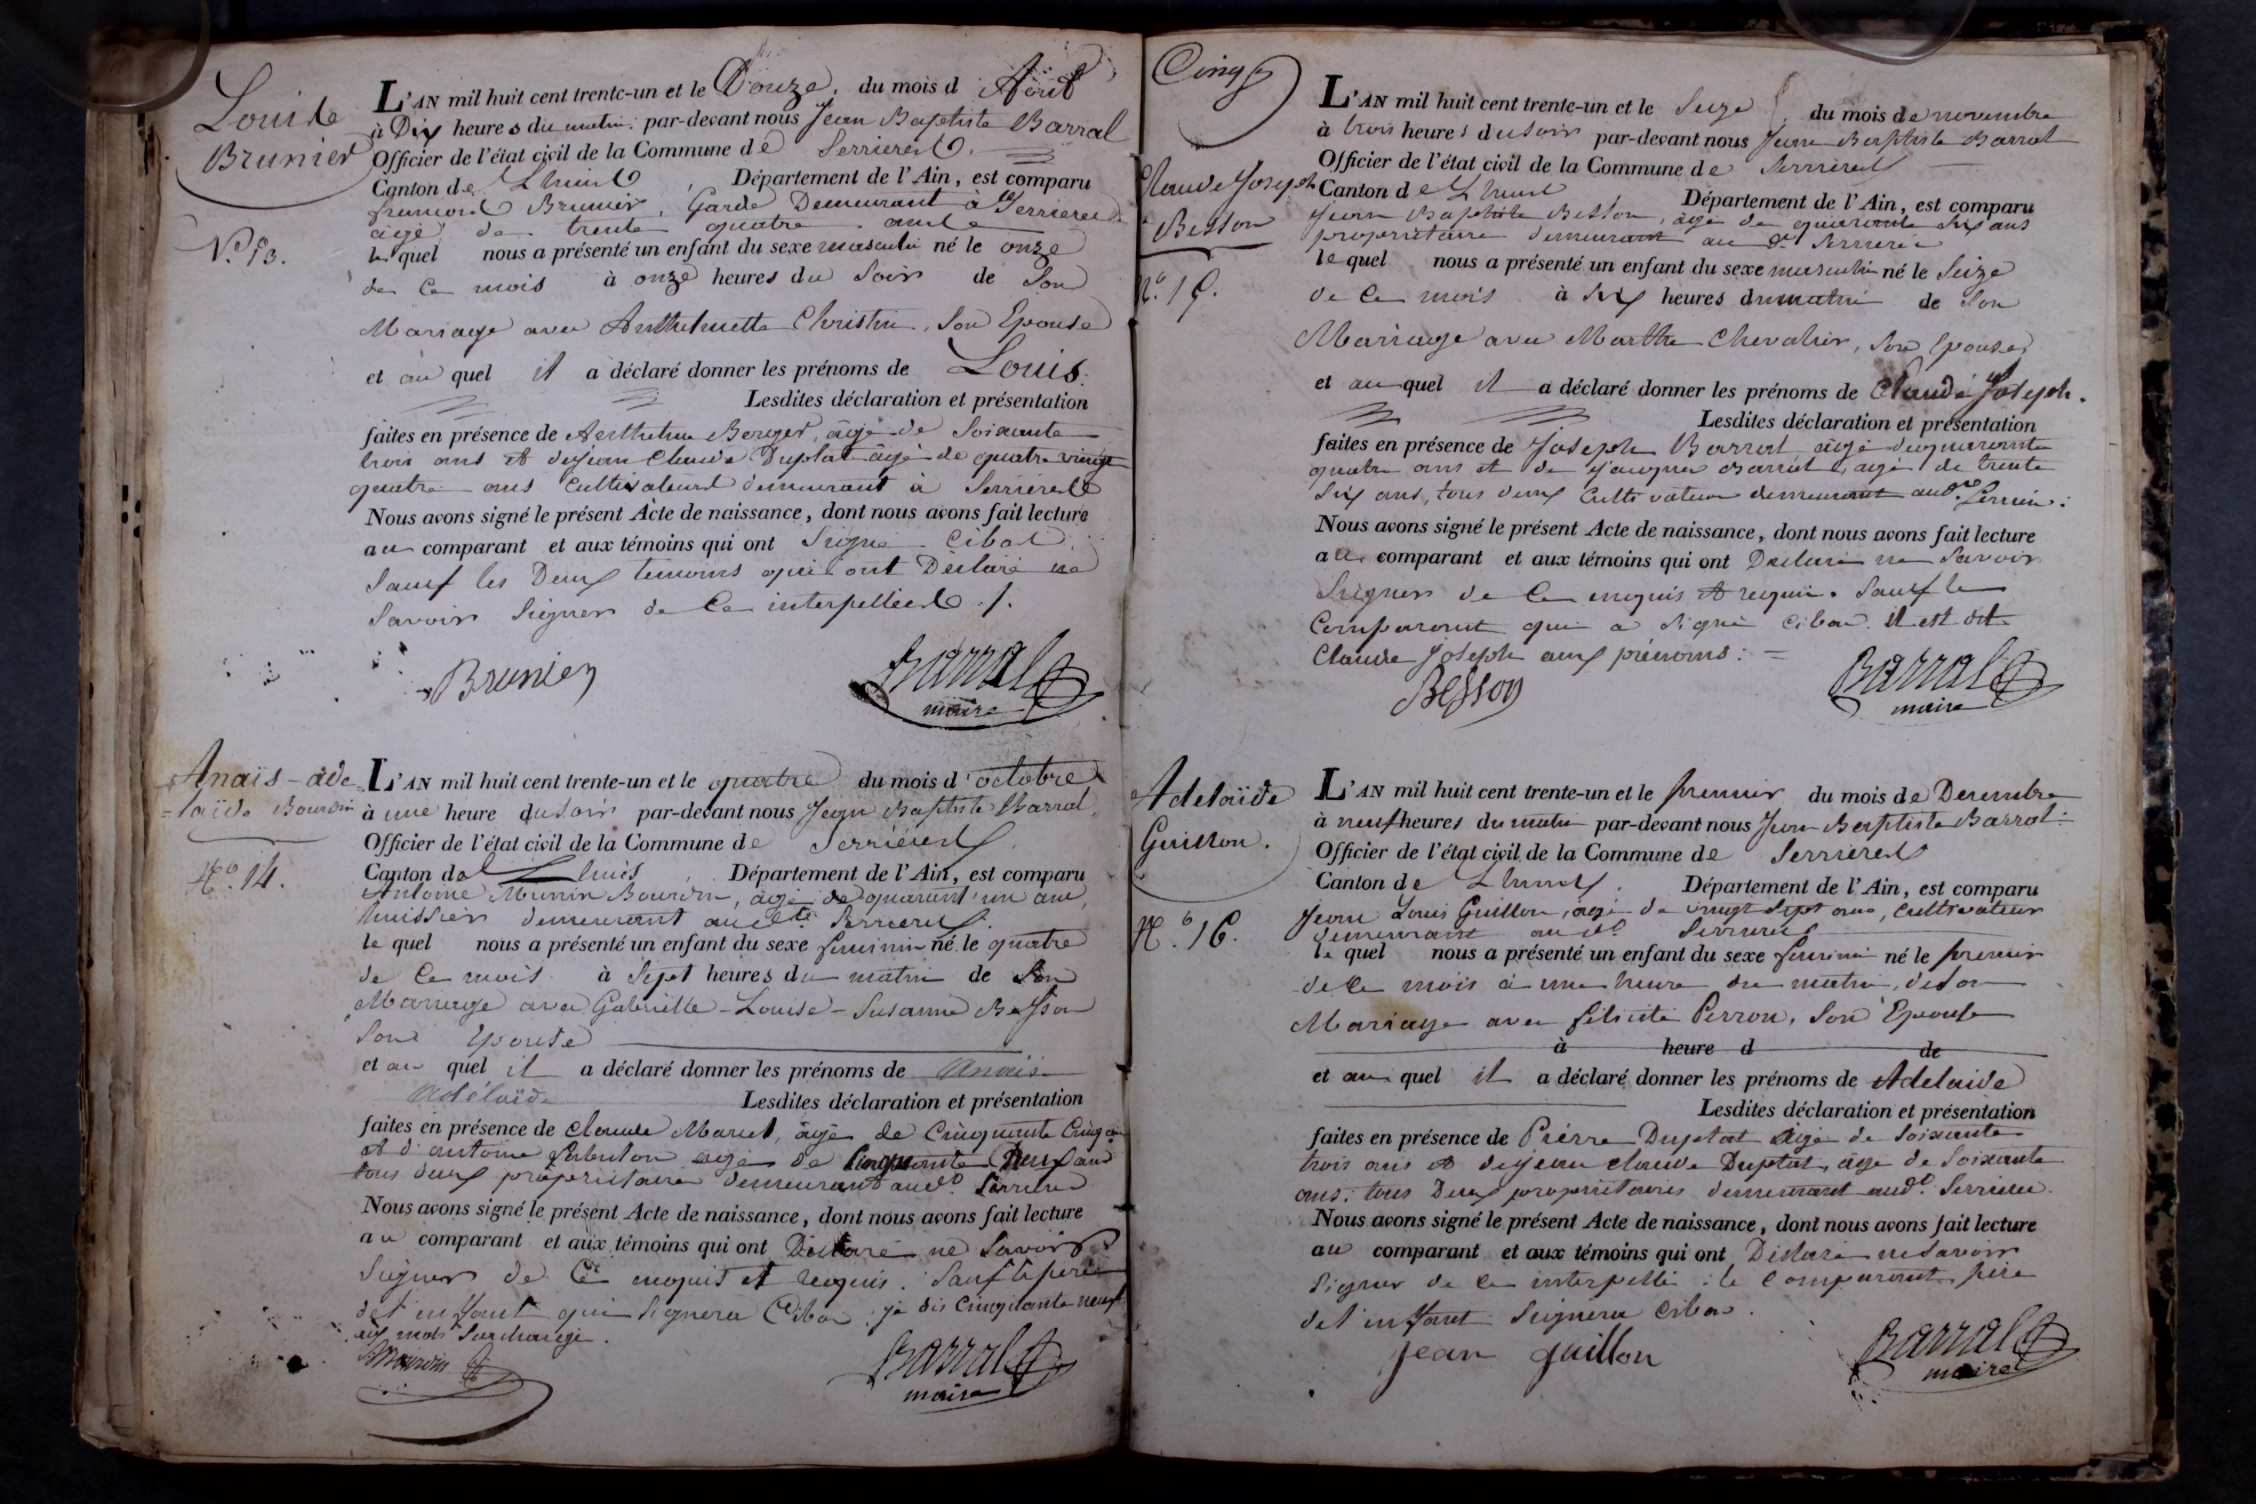 Louis
Brunier
N.° 13.
L'AN mil huit cent trente-un et le Douze, du mois d Août
à Dix heures du matin par-devant nous Jean Baptiste Barral
Officier de l'état civil de la Commune de Serrieres
Canton de Lhuis, Département de l'Ain, est comparu
Brunier, Garde Demeurant à Serrieres
agé de trente quatre ans
le quel nous a présenté un enfant du sexe masculin né le onze
de Ce mois à onze heures du Soir de Son
Mariage avec Anthelmette Christin, Son Epouse
et au quel il a déclaré donner les prénoms de Louis.
Lesdites déclaration et présentation
faites en présence de Anthelme Berger, âgé de Soixante
trois ans et de Jean Claude Duplat âgé de quatre vingt
quatre ans Cultivateurs demeurant à Serrieres
Nous avons signé le présent Acte de naissance, dont nous avons fait lecture
au comparant et aux témoins qui ont Signé Cibas
Sauf les Deux temoins qui ont Déclaré ne
Savoir Signer de Ce interpellées ./.
Brunier
Barral
maire
Anaïs-adé
=laïde Bourdin
N.° 14.
L'AN mil huit cent trente-un et le quatre du mois d'octobre
à une heure du soir par-devant nous Jean Baptiste Barral
Officier de l'état civil de la Commune de Serrieres
Canton de Lhuis, Département de l'Ain, est comparu
Antoine Bourdin, âgé de quarant'un ans,
huissier demeurant audt. Serrieres
le quel nous a présenté un enfant du sexe feminin né le quatre
de Ce mois à Sept heures du matin de Son
Mariage avec Gabrielle-Louise-Susanne Besson
Son Epouse
et au quel il a déclaré donner les prénoms de Anaïs
Adélaïde Lesdites déclaration et présentation
faites en présence de Claude âgé de Cinquante Cinq
et d'antoine agé de Cinquante Neuf ans
tous deux propriétaires demeurant audt. Serrieres
Nous avons signé le présent Acte de naissance, dont nous avons fait lecture
au comparant et aux témoins qui ont Déclaré ne Savoir
Signer de Ce enquis et requis. Sauf le père
de l'enfant qui Signera Cibas je dis Cinquante neuf
mots Surchargé.
Bourdin
Barral
maire
Cinq
Claude Joseph
Besson
N.° 15.
L'AN mil huit cent trente-un et le Seize du mois de novembre
à trois heures du soir par-devant nous Jean Baptiste Barral
Officier de l'état civil de la Commune de Serrieres
Canton de Lhuis Département de l'Ain, est comparu
Jean Baptiste Besson, âgé de quarante Six ans
propriétaire demeurant au dt. Serrieres
le quel nous a présenté un enfant du sexe masculin né le Seize
de Ce mois à Six heures du matin de Son
Mariage avec Marthe Chevalier, Son Epouse
et au quel il a déclaré donner les prénoms de Claude Joseph.
Lesdites déclaration et présentation
faites en présence de Joseph Barral âgé de quarante
quatre ans et de Jacques Barral, agé de trente
Six ans, tous deux Cultivateurs demeurant audt. Serrieres
Nous avons signé le présent Acte de naissance, dont nous avons fait lecture
au comparant et aux témoins qui ont Déclaré ne Savoir
Signer de Ce enquis et requis. Sauf le
Comparant qui a Signé Cibas. il est dit
Claude Joseph aux prénoms: =
Besson
Barral
maire
Adelaïde
Guillon.
N.° 16.
L'AN mil huit cent trente-un et le premier du mois de Decembre
à neuf heures du matin par-devant nous Jean Baptiste Barral
Officier de l'état civil de la Commune de Serrieres
Canton de Lhuis, Département de l'Ain, est comparu
Jean Louis Guillon, âgé de vingt Sept ans, Cultivateur
demeurant au dt. Serrieres
le quel nous a présenté un enfant du sexe feminin né le premier
de Ce mois à une heure du matin, de Son
Mariage avec félicité Perron, Son Epouse
à heure d de
et au quel il a déclaré donner les prénoms de Adelaide
Lesdites déclaration et présentation
faites en présence de Pierre Duplat âgé de Soixante
trois ans et de Jean Claude Duplat, âgé de Soixante
ans, tous Deux propriétaires demeurant audt. Serrieres.
Nous avons signé le présent Acte de naissance, dont nous avons fait lecture
au comparant et aux témoins qui ont Déclaré ne Savoir
Signer de Ce interpellé : le Comparant père
de l'enfant Signera Cibas.
jean guillon
Barral
maire